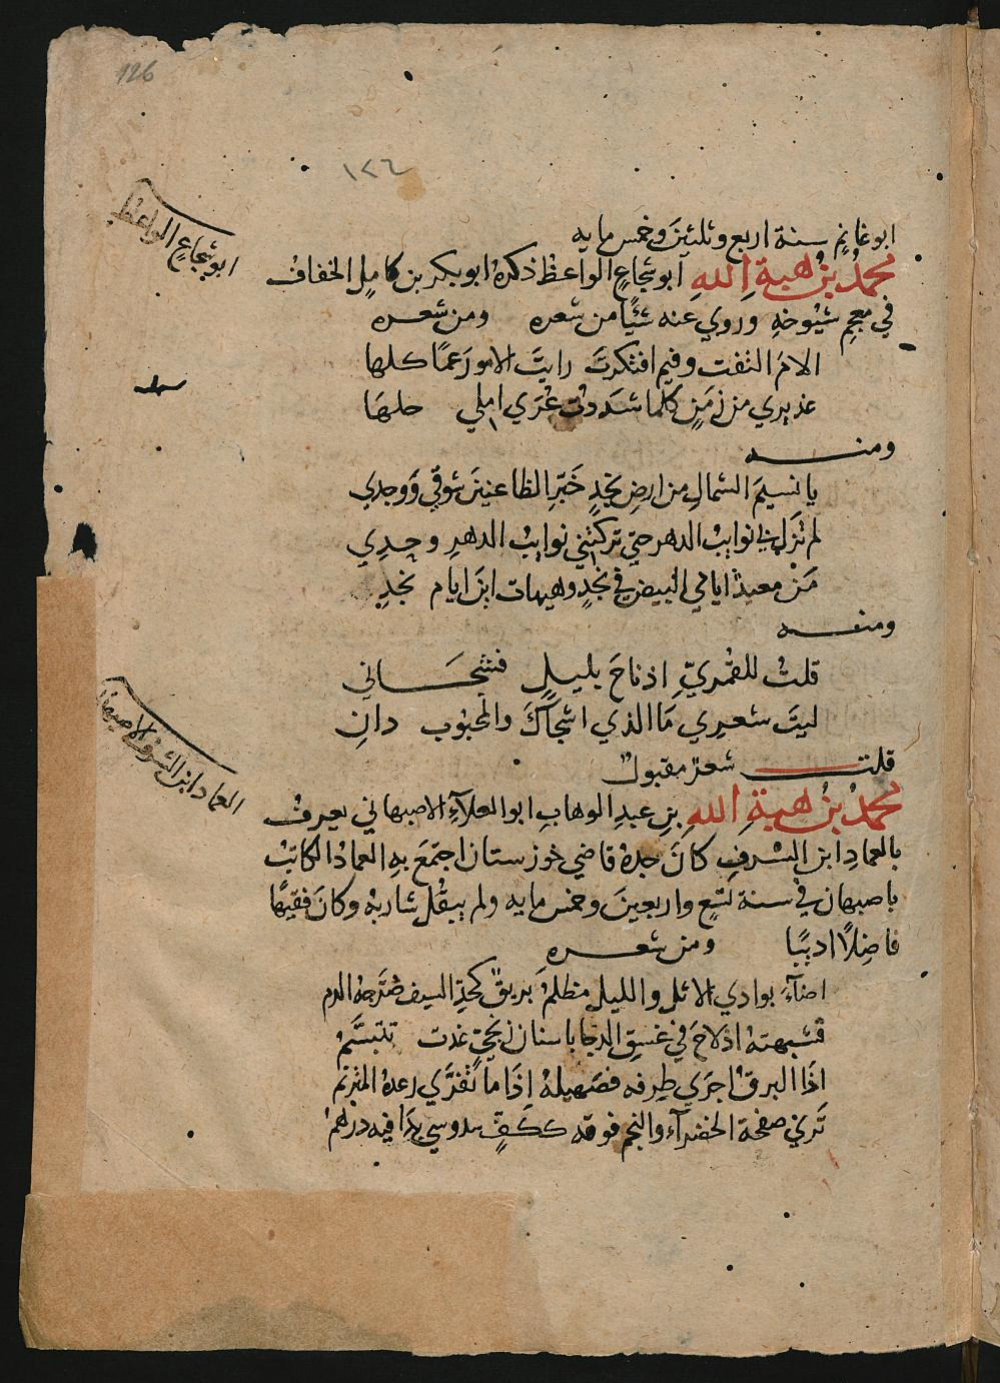 126
١٢٦
ابو غانم سنة اربع وثلثين وخمس مايه
محمد بن هبة الله ابو شجاع الواعظ ذكره ابو بكر بن كامل الخفاف
في معجم شيوخه وروي عنه شيًا من شعره ومن شعره
الامَ التفت وفيم افتكرتَ رايتَ الامورَ عمًا كلها
عذيري من زمَنٍ كلما شددت عُرَي املي حلهَا
ومنه
يا نسيمَ الشمالِ من ارضِ نجدٍ خَبّرِ الظاعنينَ شوقي وَوجدي
لم تزَل بي نوايبُ الدهر حتي تركتني نوايبُ الدهرِ وحدِي
مَن معيدٌ ايامي البيض في نجدٍ وهيهات اينَ ايام نجدِ
ومنه
قلتُ للقمريّ اذ ناحَ بليلٍ فشجَاني
ليتَ شعري مَا الذي اشجاكَ والمحبوب دانِ
قلت شعرٌ مقبول
محمدُ بنُ هبةِ اللهِ بنِ عبدِ الوهابِ ابو العلآءِ الاصبهاني يعرفُ
بالعمادِ ابن الشرفِ كانَ جدهُ قاضي خوزستان اجتمَعَ بهِ العمادُ الكاتبُ
باصبهان في سنة تسع واربعينَ وخمس مايه ولم يبقُل شاربهُ وكانَ فقيهًا
فاضِلًا اديبًا ومن شعره
اضآءَ بوادي الاثل والليل مظلمُ بريقٌ كحدِ السيف ضرَّجهُ الدم
فشبهتهُ اذ لاحَ في غسقِ الدجا باسنان زنجيٍ غدت تتبسَّمُ
اذا البرقُ اجرَي طرفه فصَهيلهُ اِذَا ما تفرَّي رعدهُ المترنم
تَري صفحة الخضرآء والنجم فوقه ككفٍ سدوسي بدَا فيه درهمُ
ابو شجاع الواعظ
العماد ابن الشرف الاصبهاني